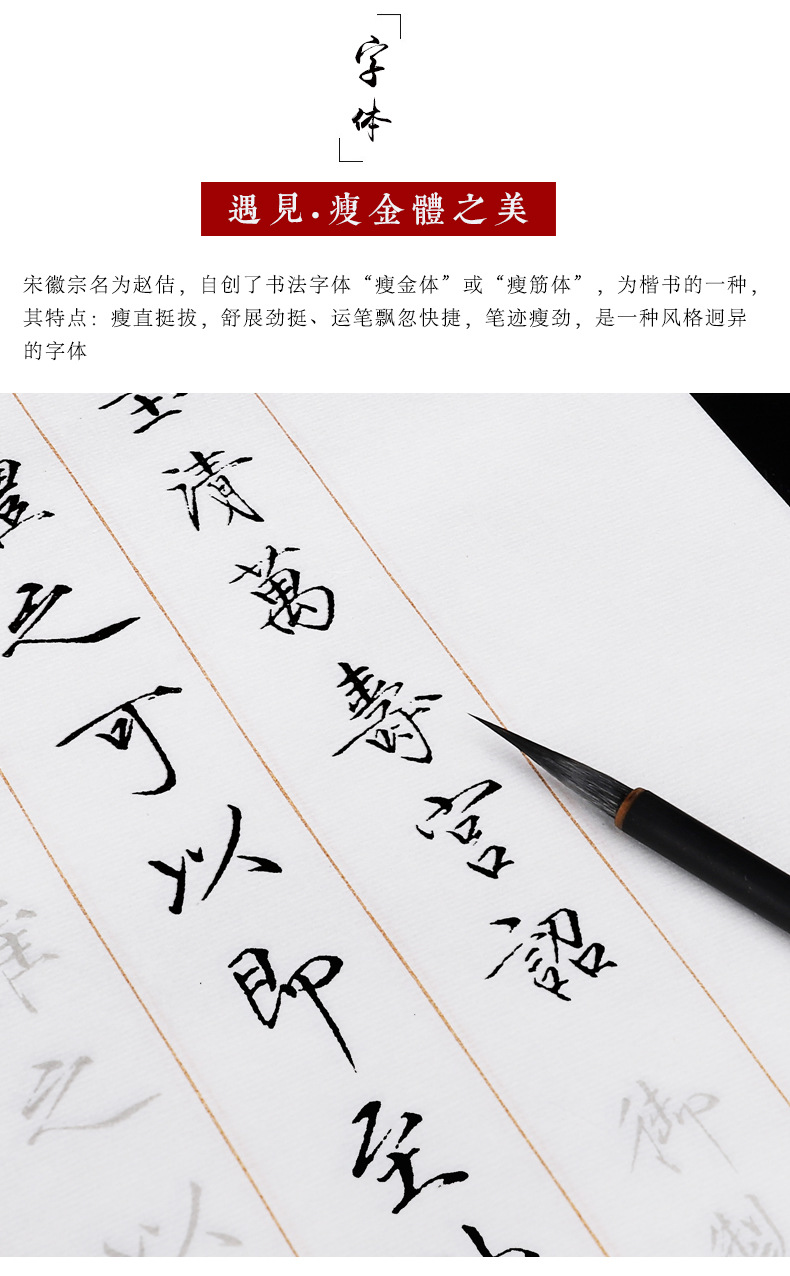 字
体
遇見.瘦金體之美
宋徽宗名为赵佶，自创了书法字体“瘦金体”或“瘦筋体”，为楷书的一种，
其特点：瘦直挺拔，舒展劲挺、运笔飘忽快捷，笔迹瘦劲，是一种风格迥异
的字体
玉清萬壽宮詔
御制
之可以即至
之以